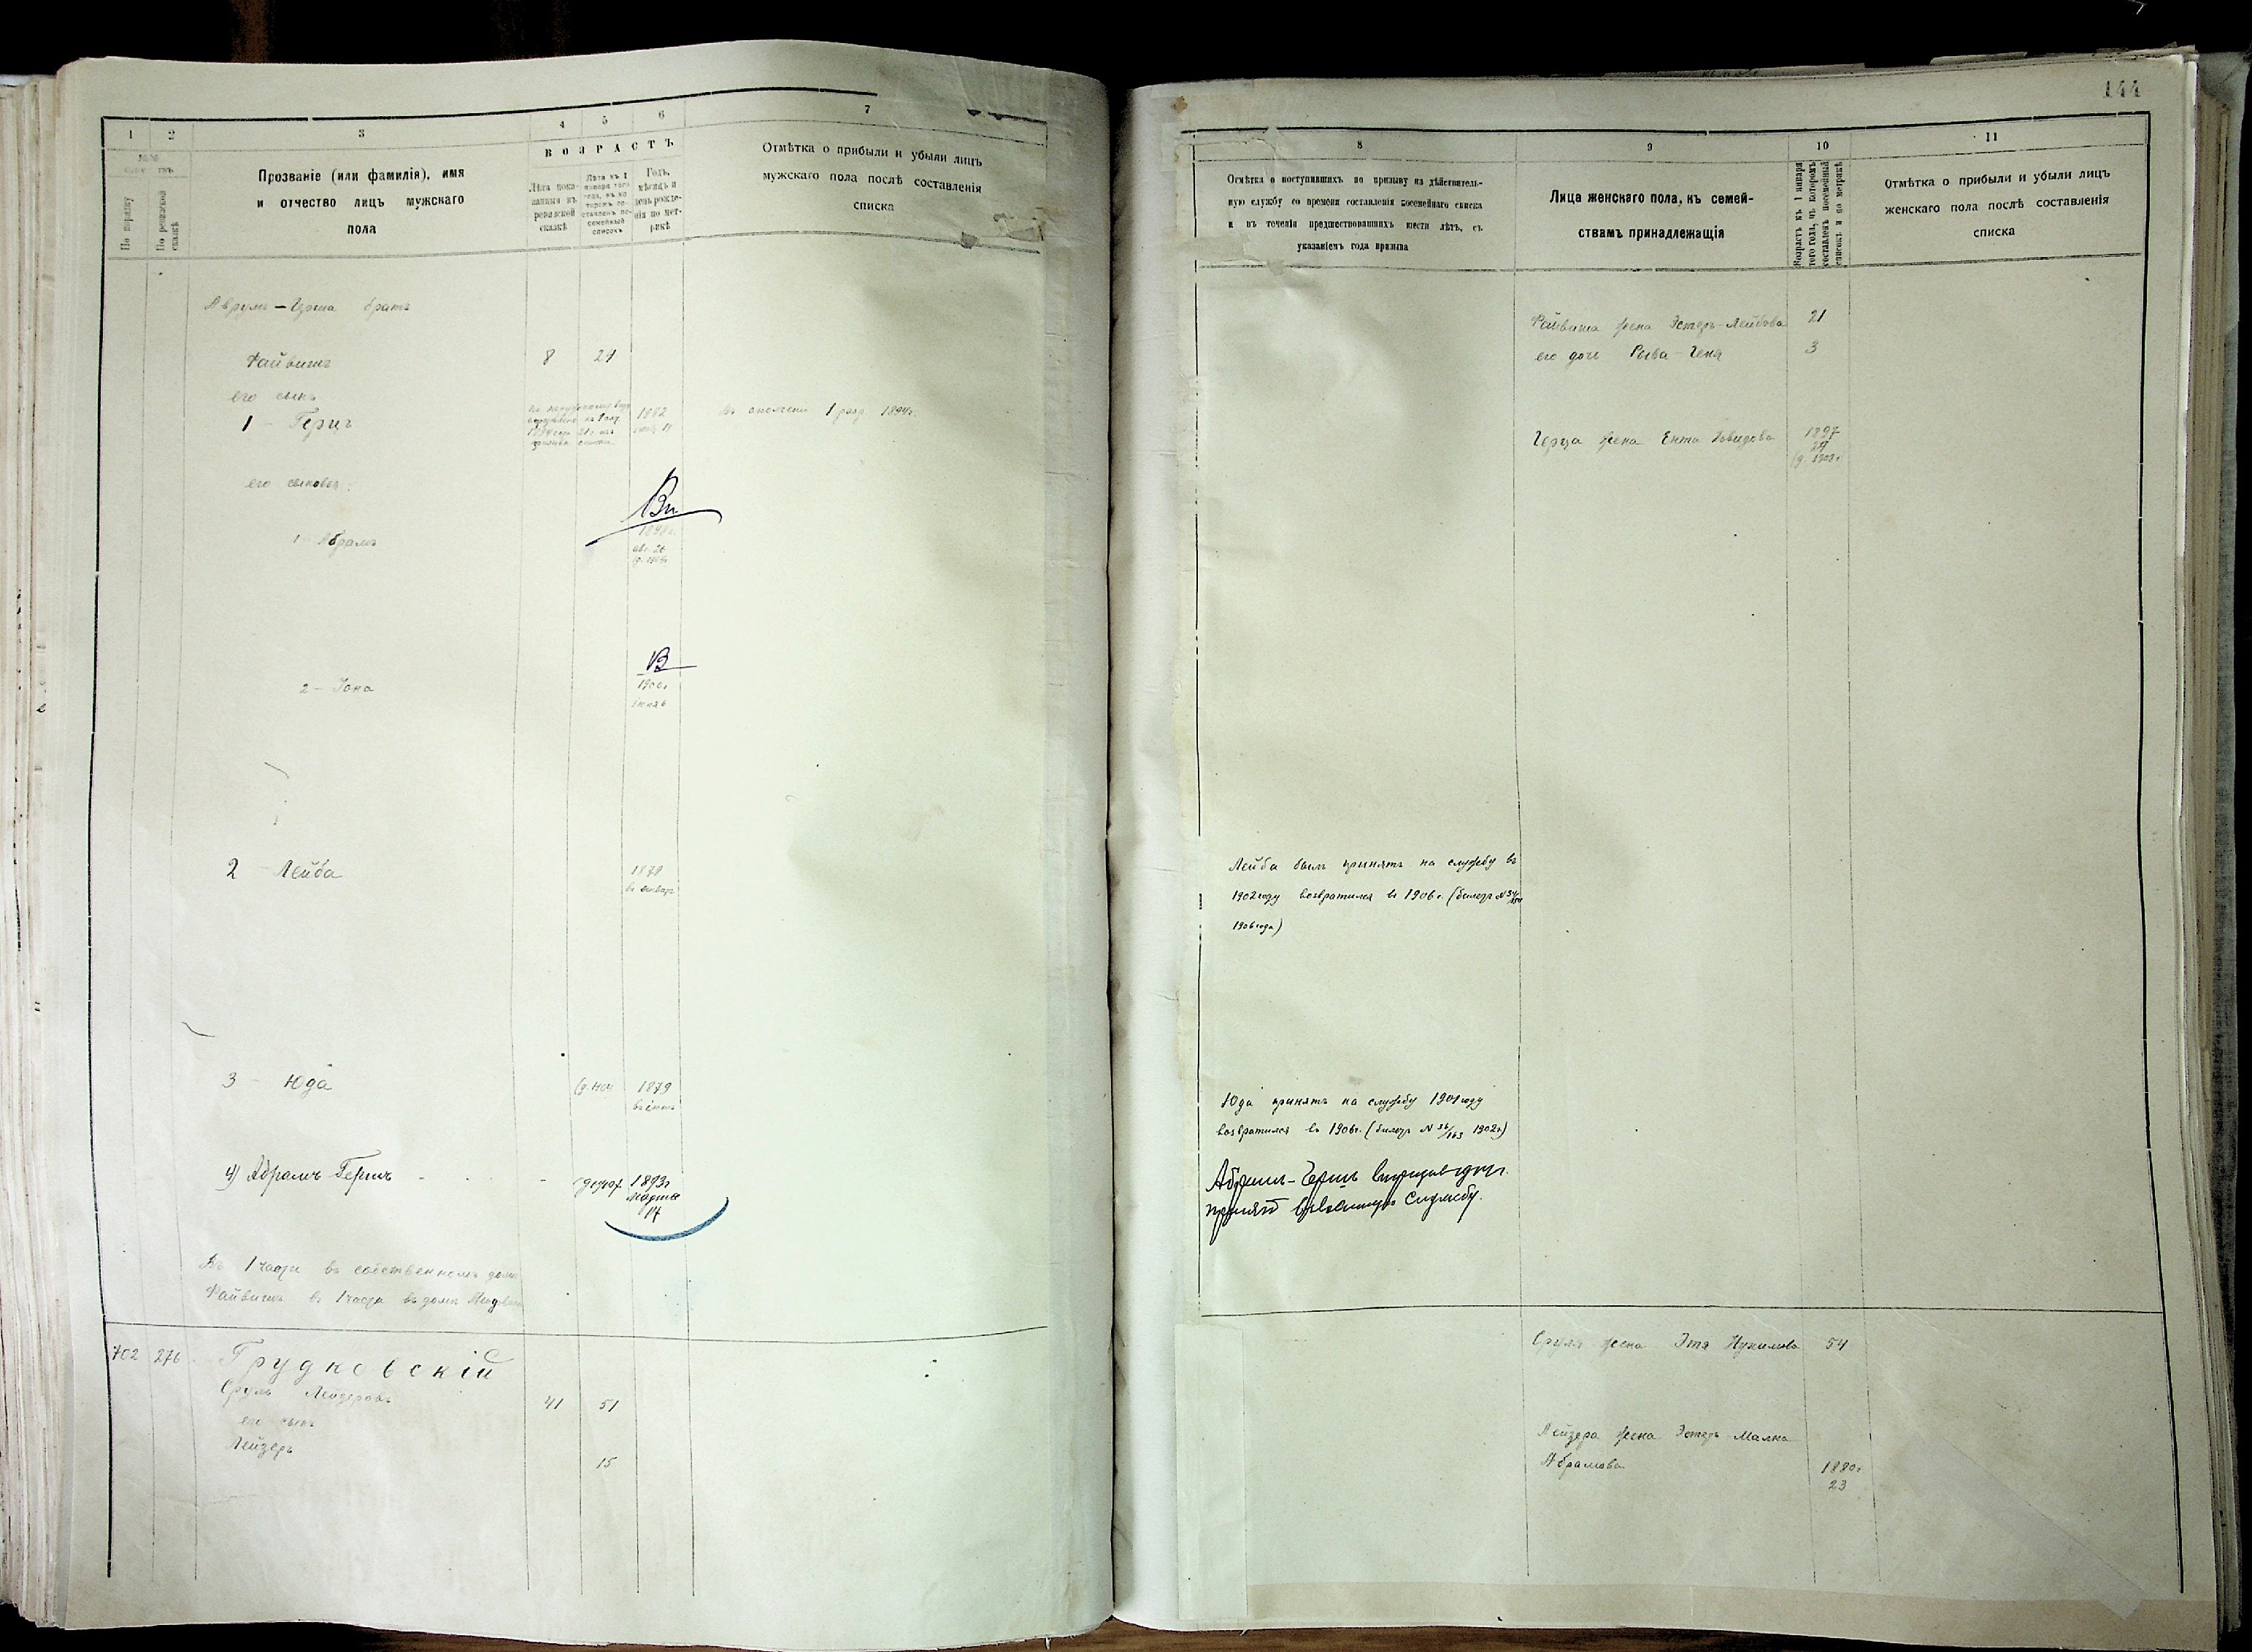 1
2
3
4
5
6
7
№№
По порядку
По ревизской
сказкѣ
Прозваніе (или фамилія), имя
и отчество лицъ мужскаго
пола
ВОЗРАСТЪ
Лѣта пока-
занныя въ
ревизской
сказкѣ
Лѣта къ 1
января того
года, въ ко
торомъ со-
ставленъ по-
семейный
списокъ
Годъ,
мѣсяцъ и
день рожде-
нія по мет-
рикѣ
Отмѣтка о прибыли и убыли лицъ
мужскаго пола послѣ составленія
списка
Аврумъ-Герша братъ
Файвишъ 8 21
его сынъ
1 - Герцъ 1882
1 разр. 1894г.
его сыновья:
Вп
1 Абрамъ
В
2 - Іона 1900г
іюня 6
2 - Лейба 1878
въ январѣ
3 - Юда 1879
4) Абрамъ-Гершъ 1893г
марта
14
Въ 1 части въ собственномъ домѣ
Файвишъ въ 1 части въ домѣ
702 276 Грудковскій
Сруль Лейзеровъ 41 51
его сынъ
Лейзеръ
15
144
8
9
10
11
Отмѣтка о поступившихъ по призыву на дѣйствитель-
ную службу со времени составленія посемейнаго списка
и въ теченіи предшествовавшихъ шести лѣтъ, съ
указаніемъ года призыва
Лица женскаго пола, къ семей-
ствамъ принадлежащія
Возрастъ къ 1 января
того года, въ которомъ
составленъ посемейный
списокъ и по метрикѣ
Отмѣтка о прибыли и убыли лицъ
женскаго пола послѣ составленія
списка
Файвиша жена Эстеръ-Лейбова 21
его дочь Рыва-Геня 3
Герца жена Ента Давидова 1897
Лейба былъ принятъ на службу въ
1902 году возвратился въ 1906 г. (билетъ №
1906 года)
Юда принятъ на службу 1901 году
возвратился въ 1906г. (билетъ № 36/163 1902г)
Абрамъ-Гершъ
принятъ службу.
Сруля жена Этя Нухимова 54
Лейзера жена Эстеръ-Малка
Абрамова 1880г
23